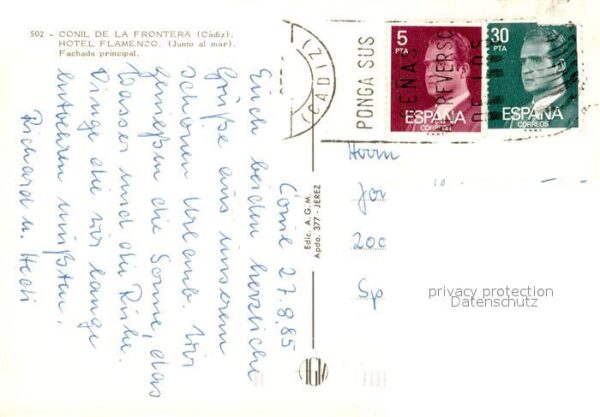 502 - CONIL DE LA FRONTERA (Cádiz).
HOTEL FLAMENCO. (Junto al mar).
Fachada principal.
27.8.85
Euch beiden herzliche
Grüße aus unserem
schönen Urlaub. Wir
genießen die Sonne, das
Wasser und die Ruhe.
Dinge die wir lange
entbehren mußten.
Richard u. Hedi
Edic. A.G.M.
Apdo. 377 - JEREZ
AGM
(CADIZ)
PONGA SUS
SENAS
REVERSO
5
PTA
ESPAÑA
CORREOS
30
PTA
ESPAÑA
CORREOS
Herrn
privacy protection
Datenschutz